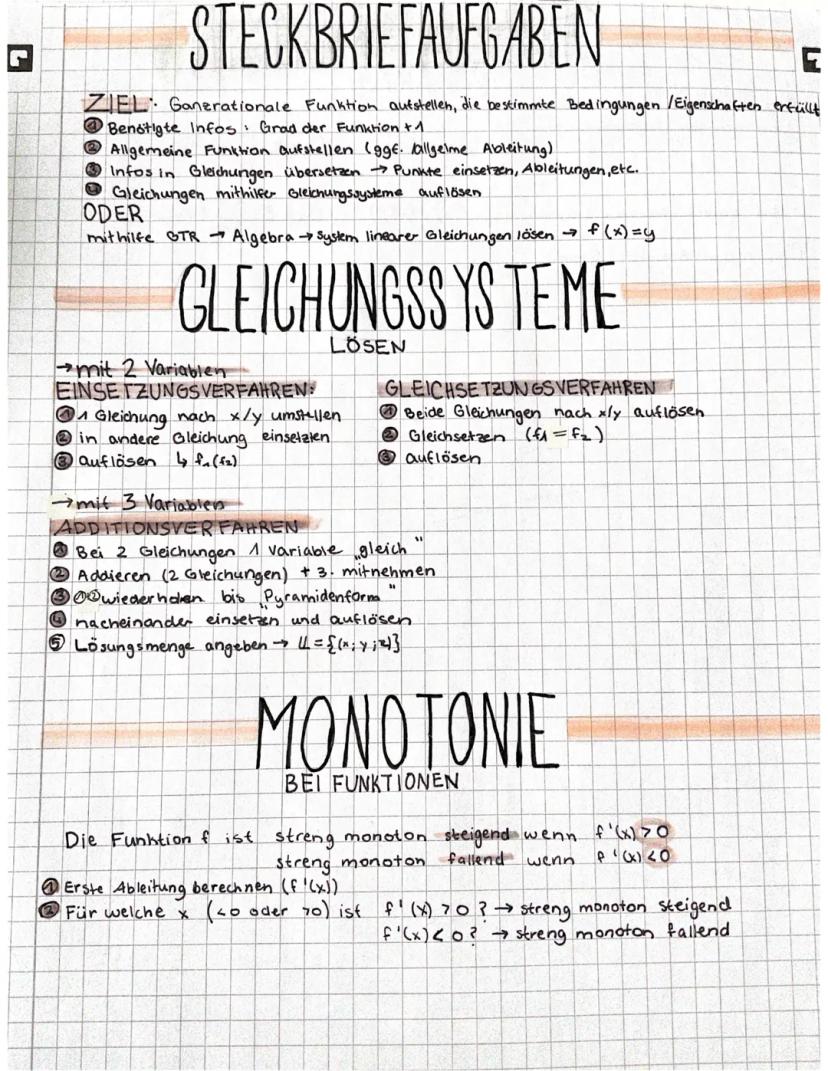 STECKBRIEFAUFGABEN
ZIEL: Ganzrationale Funktion aufstellen, die bestimmte Bedingungen /Eigenschaften erfüllt
① Benötigte Infos: Grad der Funktion +1
② Allgemeine Funktion aufstellen (ggf. allgeime Ableitung)
③ Infos in Gleichungen übersetzen → Punkte einsetzen, Ableitungen, etc.
④ Gleichungen mithilfe Gleichungssysteme auflösen
ODER
mithilfe GTR → Algebra → System linearer Gleichungen lösen → f(x)=y
GLEICHUNGSSYSTEME
LÖSEN
→ mit 2 Variablen
EINSETZUNGSVERFAHREN:
① 1 Gleichung nach x/y umstellen
② in andere Gleichung einsetzten
③ auflösen ↳ f₁(f₂)
GLEICHSETZUNGSVERFAHREN
① Beide Gleichungen nach x/y auflösen
② Gleichsetzen (f₁ = f₂)
③ auflösen
→ mit 3 Variablen
ADDITIONSVERFAHREN
① Bei 2 Gleichungen 1 Variable „gleich"
② Addieren (2 Gleichungen) + 3. mitnehmen
③ ①② wiederholen bis „Pyramidenform"
④ nacheinander einsetzen und auflösen
⑤ Lösungsmenge angeben → L = {(x; y; z)}
MONOTONIE
BEI FUNKTIONEN
Die Funktion f ist streng monoton steigend wenn f'(x) > 0
streng monoton fallend wenn f'(x) < 0
① Erste Ableitung berechnen (f'(x))
② Für welche x (<0 oder >0) ist f'(x) > 0? → streng monoton steigend
f'(x) < 0? → streng monoton fallend